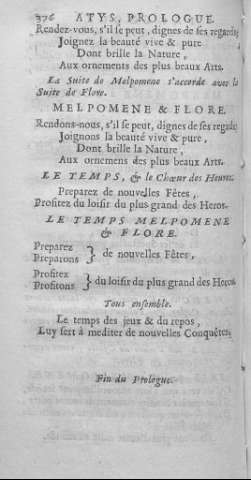 376 ATYS, PROLOGUE.
Rendez-vous, s'il se peut, dignes de ses regards,
Joignez la beauté vive & pure
Dont brille la Nature,
Aux ornements des plus beaux Arts.
La Suite de Melpomene s'accorde avec la
Suite de Flore.
MELPOMENE & FLORE.
Rendons-nous, s'il se peut, dignes de ses regards
Joignons la beauté vive & pure,
Dont brille la Nature,
Aux ornemens des plus beaux Arts.
LE TEMPS, & le Chœur des Heures.
Preparez de nouvelles Fêtes,
Profitez du loisir du plus grand des Heros.
LE TEMPS MELPOMENE
& FLORE.
Preparez
Preparons } de nouvelles Fêtes,
Profitez
Profitons } du loisir du plus grand des Heros
Tous ensemble.
Le temps des jeux & du repos,
Luy sert à mediter de nouvelles Conquêtes.
Fin du Prologue.